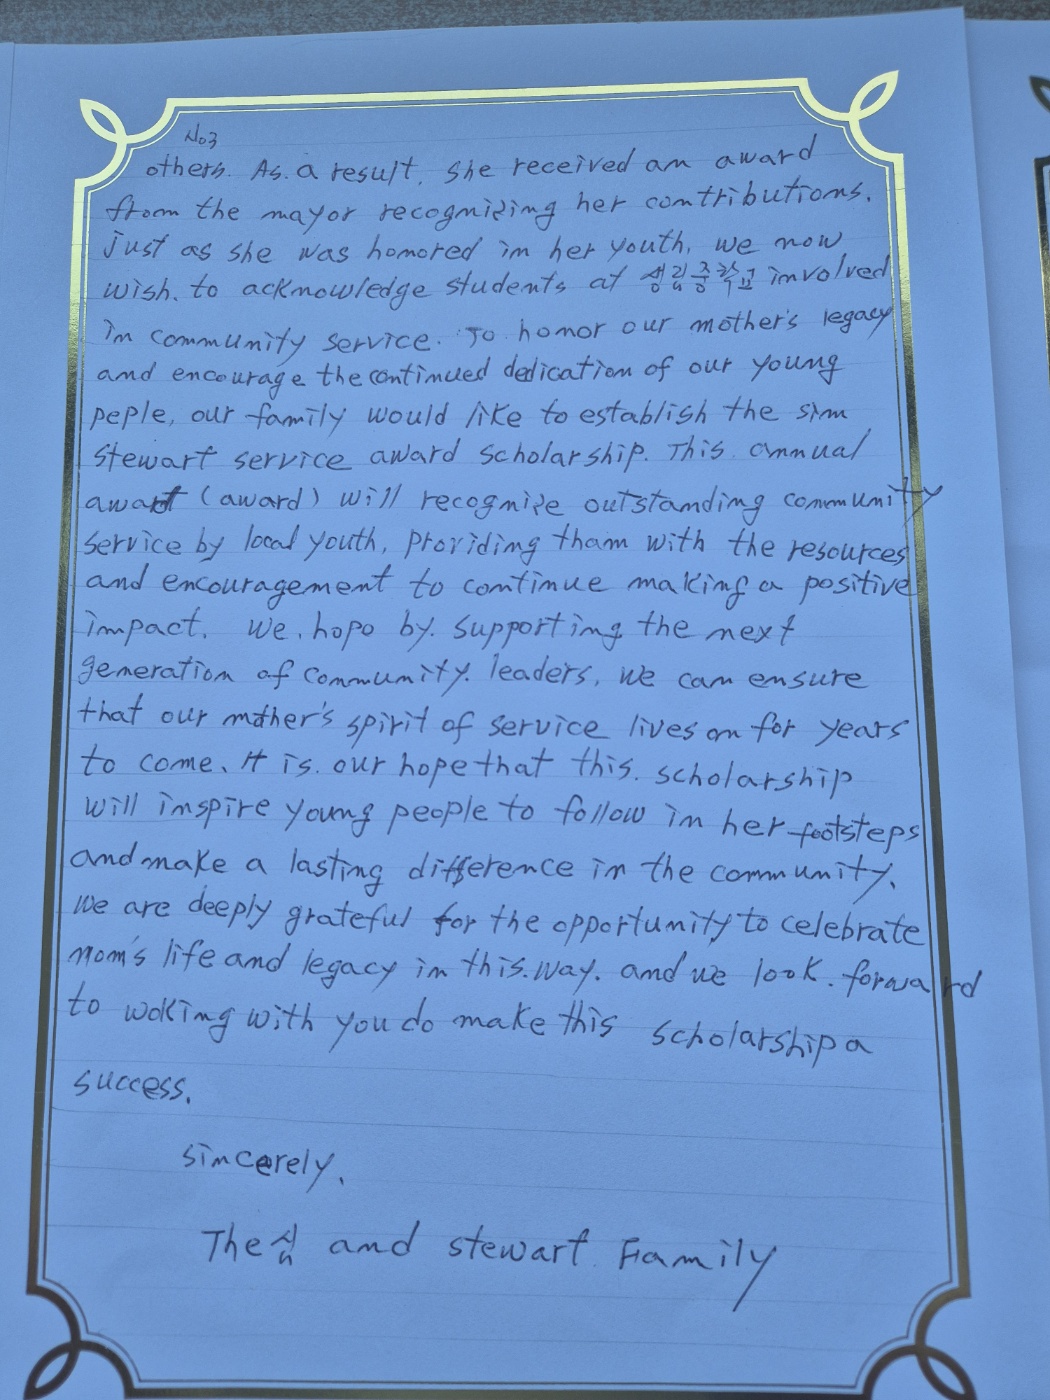 No3
others. As. a result, she received an award
from the mayor recognizing her contributions.
Just as she was honored in her youth, we now
wish. to acknowledge students at 생림중학교 involved
in community service. To honor our mother's legacy
and encourage the continued dedication of our young
peple, our family would like to establish the sim
stewart service award scholarship. This annual
awart (award) will recognize outstanding community
service by local youth, providing tham with the resources
and encouragement to continue making a positive
impact. We. hopo by. supporting the next
generation of community. leaders, we can ensure
that our mother's spirit of service lives on for years
to come. It is. our hope that this. scholarship
will inspire young people to follow in her footsteps
and make a lasting difference in the community.
We are deeply grateful for the opportunity to celebrate
mom's life and legacy in this. way. and we look. forward
to woking with you do make this scholarship a
success.
sincerely.
The 심 and stewart Family